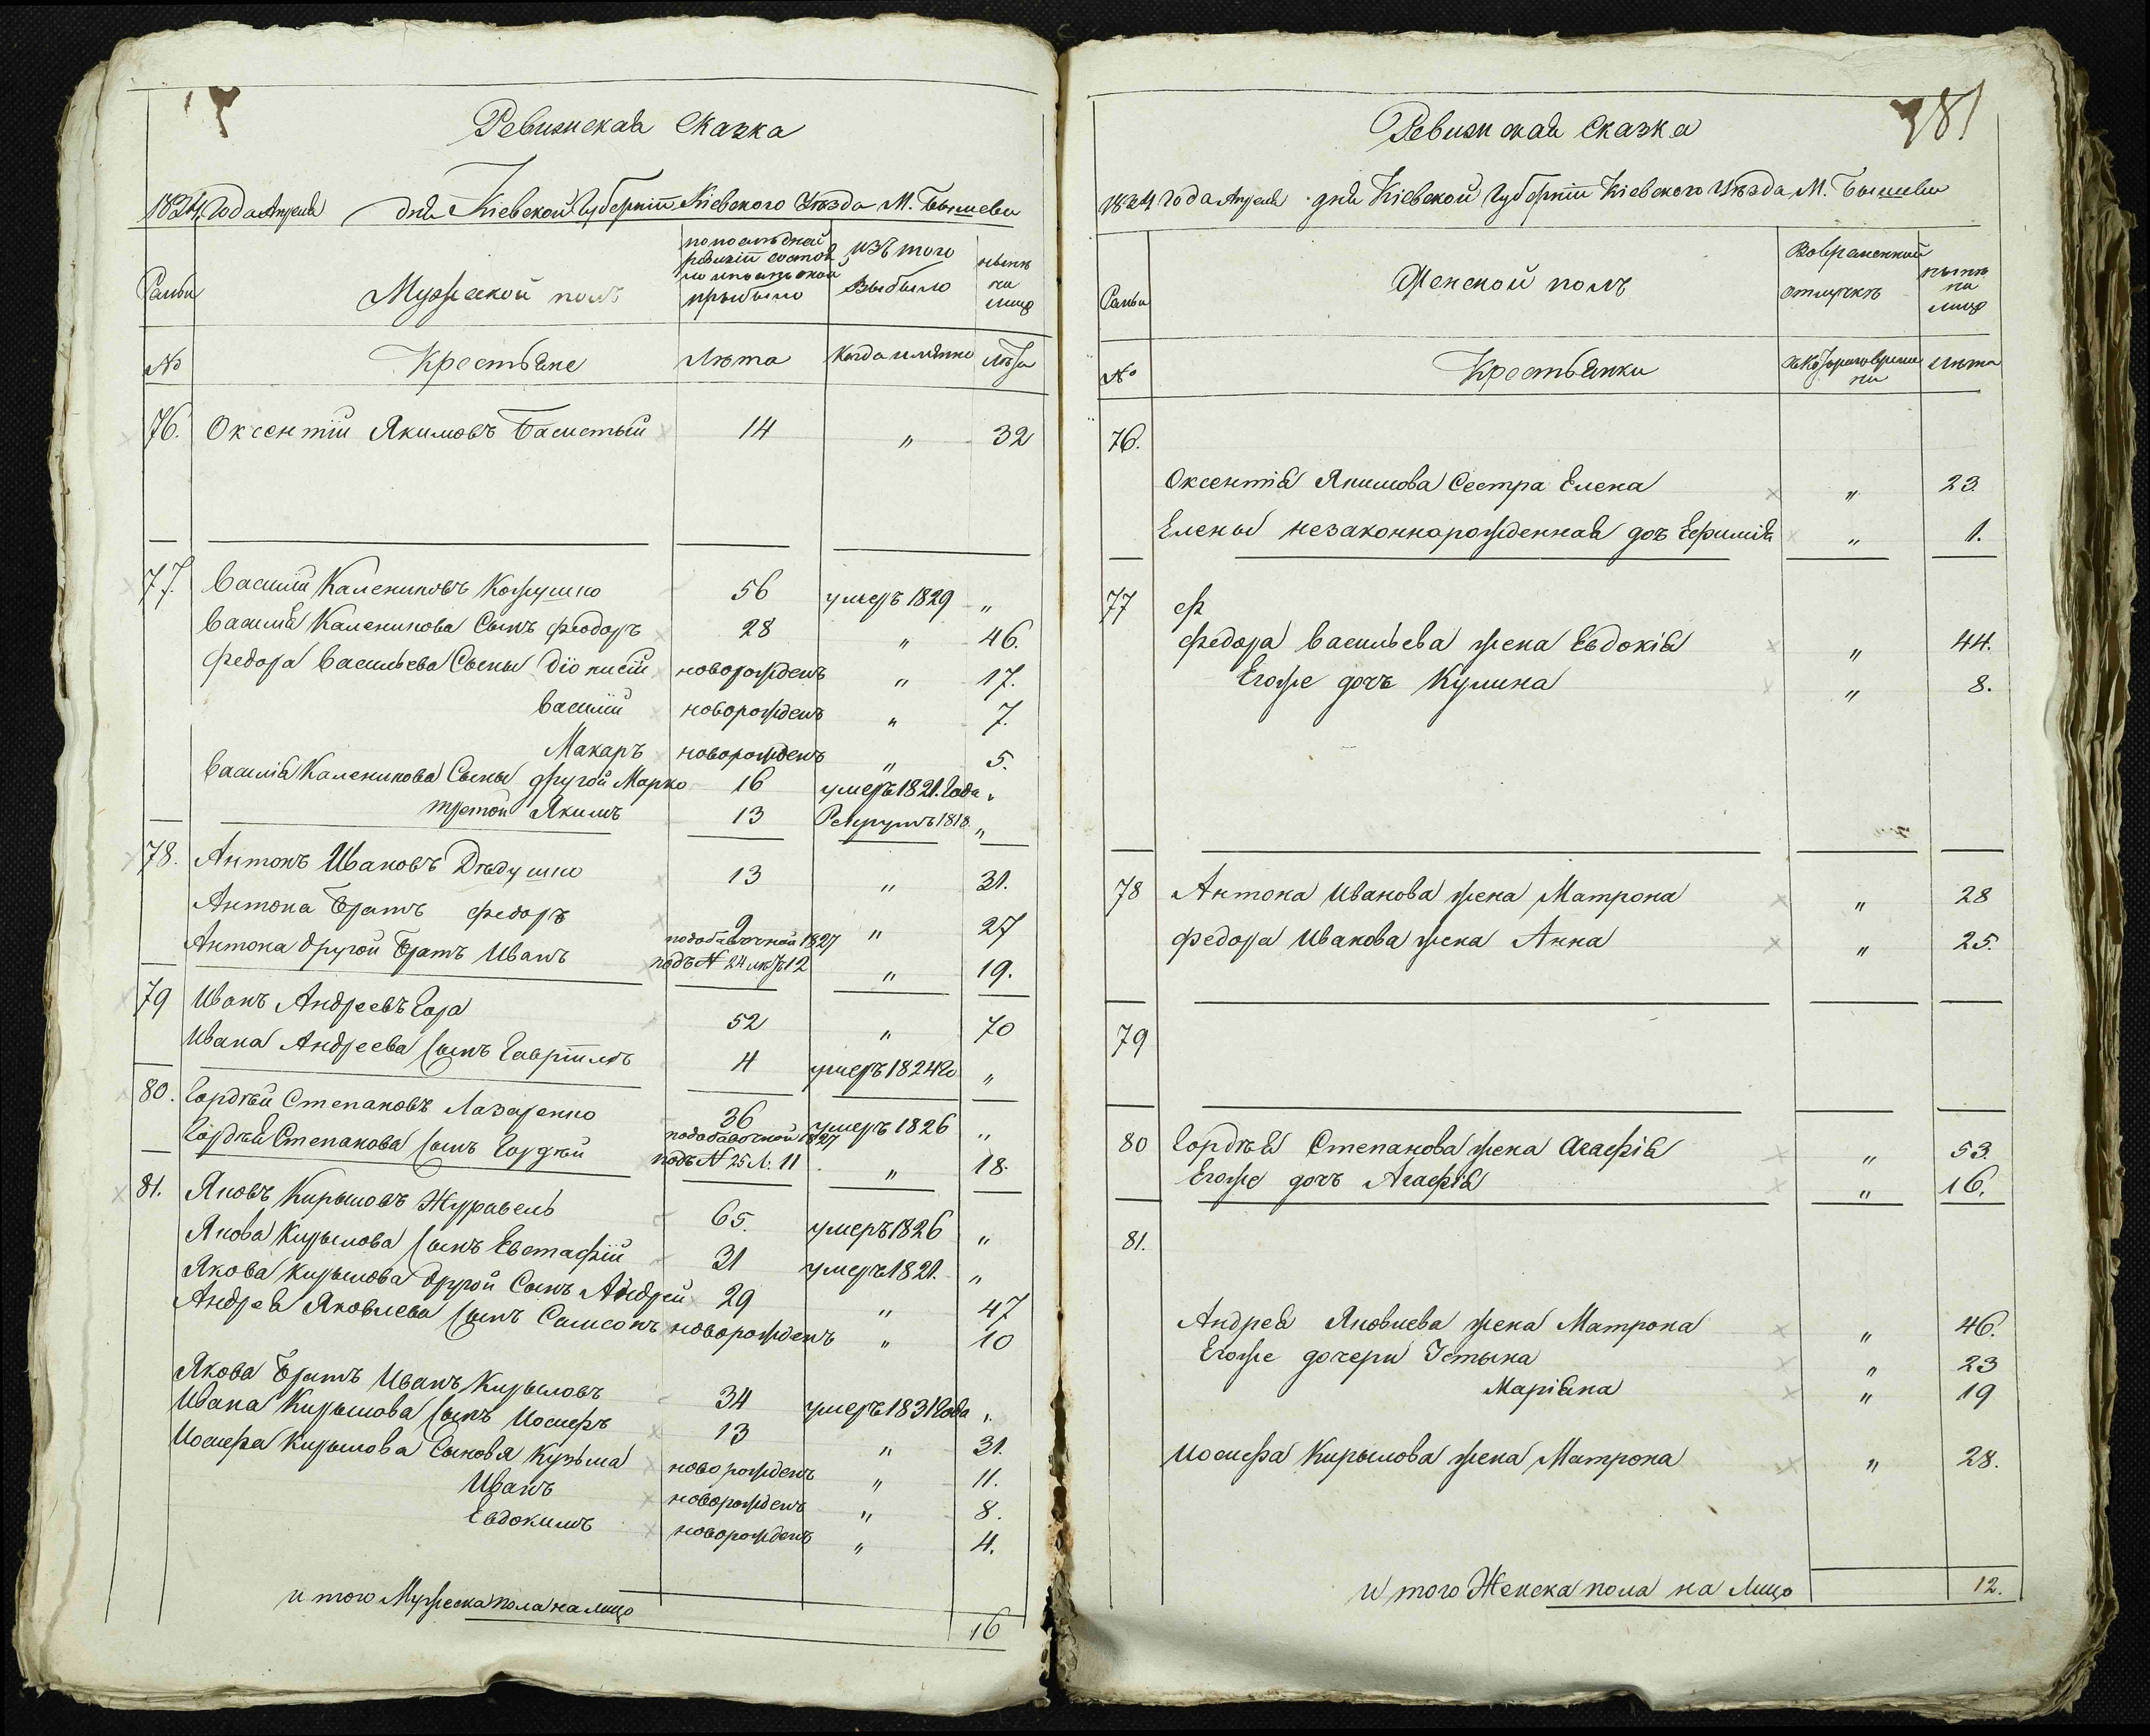 Ревизская Сказка
1834 года Апреля дня Кіевской Губерніи Кіевского Уѣзда М. Бышева
Семьи
Мужеской полъ
по последней ревизіи состояло и после оной прибыло
изъ того выбыло
ныне на лицо
№
Крестьяне
Лѣта
Когда имянно
Лѣта
76. Оксентій Якимовъ Басистый 14 „ 32
77. Василій Калениковъ Кожушко 56 умеръ 1829 „
Василія Каленикова Сынъ Феодоръ 28 „ 46.
Федора Васильева Сыны Діонисій новорожденъ „ 17.
Василій новорожденъ „ 7.
Макаръ новорожденъ „ 5.
Василія Каленикова Сыны другой Марко 16 умеръ 1821. Года „
третой Якимъ 13 Рекрутъ 1818. „
78. Антонъ Ивановъ Дѣдушко 13 „ 31.
Антона Братъ Федоръ 9 „ 27
Антона другой Братъ Иванъ подобавочной 1827 подъ N 24 лѣтъ 12 „ 19.
79 Иванъ Андреевъ Гора 52 „ 70
Ивана Андреева Сынъ Гавріилъ 4 умеръ 1824 го „
80. Гордѣй Степановъ Лазаренко 36 умеръ 1826 „
Гордѣя Степанова Сынъ Гордѣй подобавочной 1827 подъ N 25 Л. 11 „ 18.
81. Яковъ Кирыловъ Журавель 65. умеръ 1826 „
Якова Кирылова Сынъ Евстафій 31 умеръ 1821. „
Якова Кирылова другой Сынъ Андрей 29 „ 47
Андрея Яковлева Сынъ Самсонъ новорожденъ „ 10
Якова Братъ Иванъ Кирыловъ 34 умеръ 1831 Года „
Ивана Кирылова Сынъ Иосифъ 13 „ 31.
Иосифа Кирылова Сыновя Кузьма новорожденъ „ 11.
Иванъ новорожденъ „ 8.
Евдокимъ новорожденъ „ 4.
и того Мужеска пола на лицо 16
381
Ревизская Сказка
1834 года Апреля дня Кіевской Губерніи Кіевского Уѣзда М. Бышева
Семьи
Женской полъ
Во временной отлучкѣ
ныне на лицо
№
Крестьянки
съ котораго времени
Лѣта
76.
Оксентія Якимова Сестра Елена „ 23.
Елены незаконнорожденная дочъ Ефимія „ 1.
77 Ф
Федора Васильева жена Евдокія „ 44.
Егоже дочъ Кулина „ 8.
78 Антона Иванова жена Матрона „ 28
Федора Иванова жена Анна „ 25.
79
80 Гордѣя Степанова жена Агафія „ 53.
Егоже дочъ Агафія „ 16.
81.
Андрея Яковлева жена Матрона „ 46.
Егоже дочери Устына „ 23
Маріяна „ 19
Иосифа Кирылова жена Матрона „ 28.
и того Женска пола на Лицо 12.